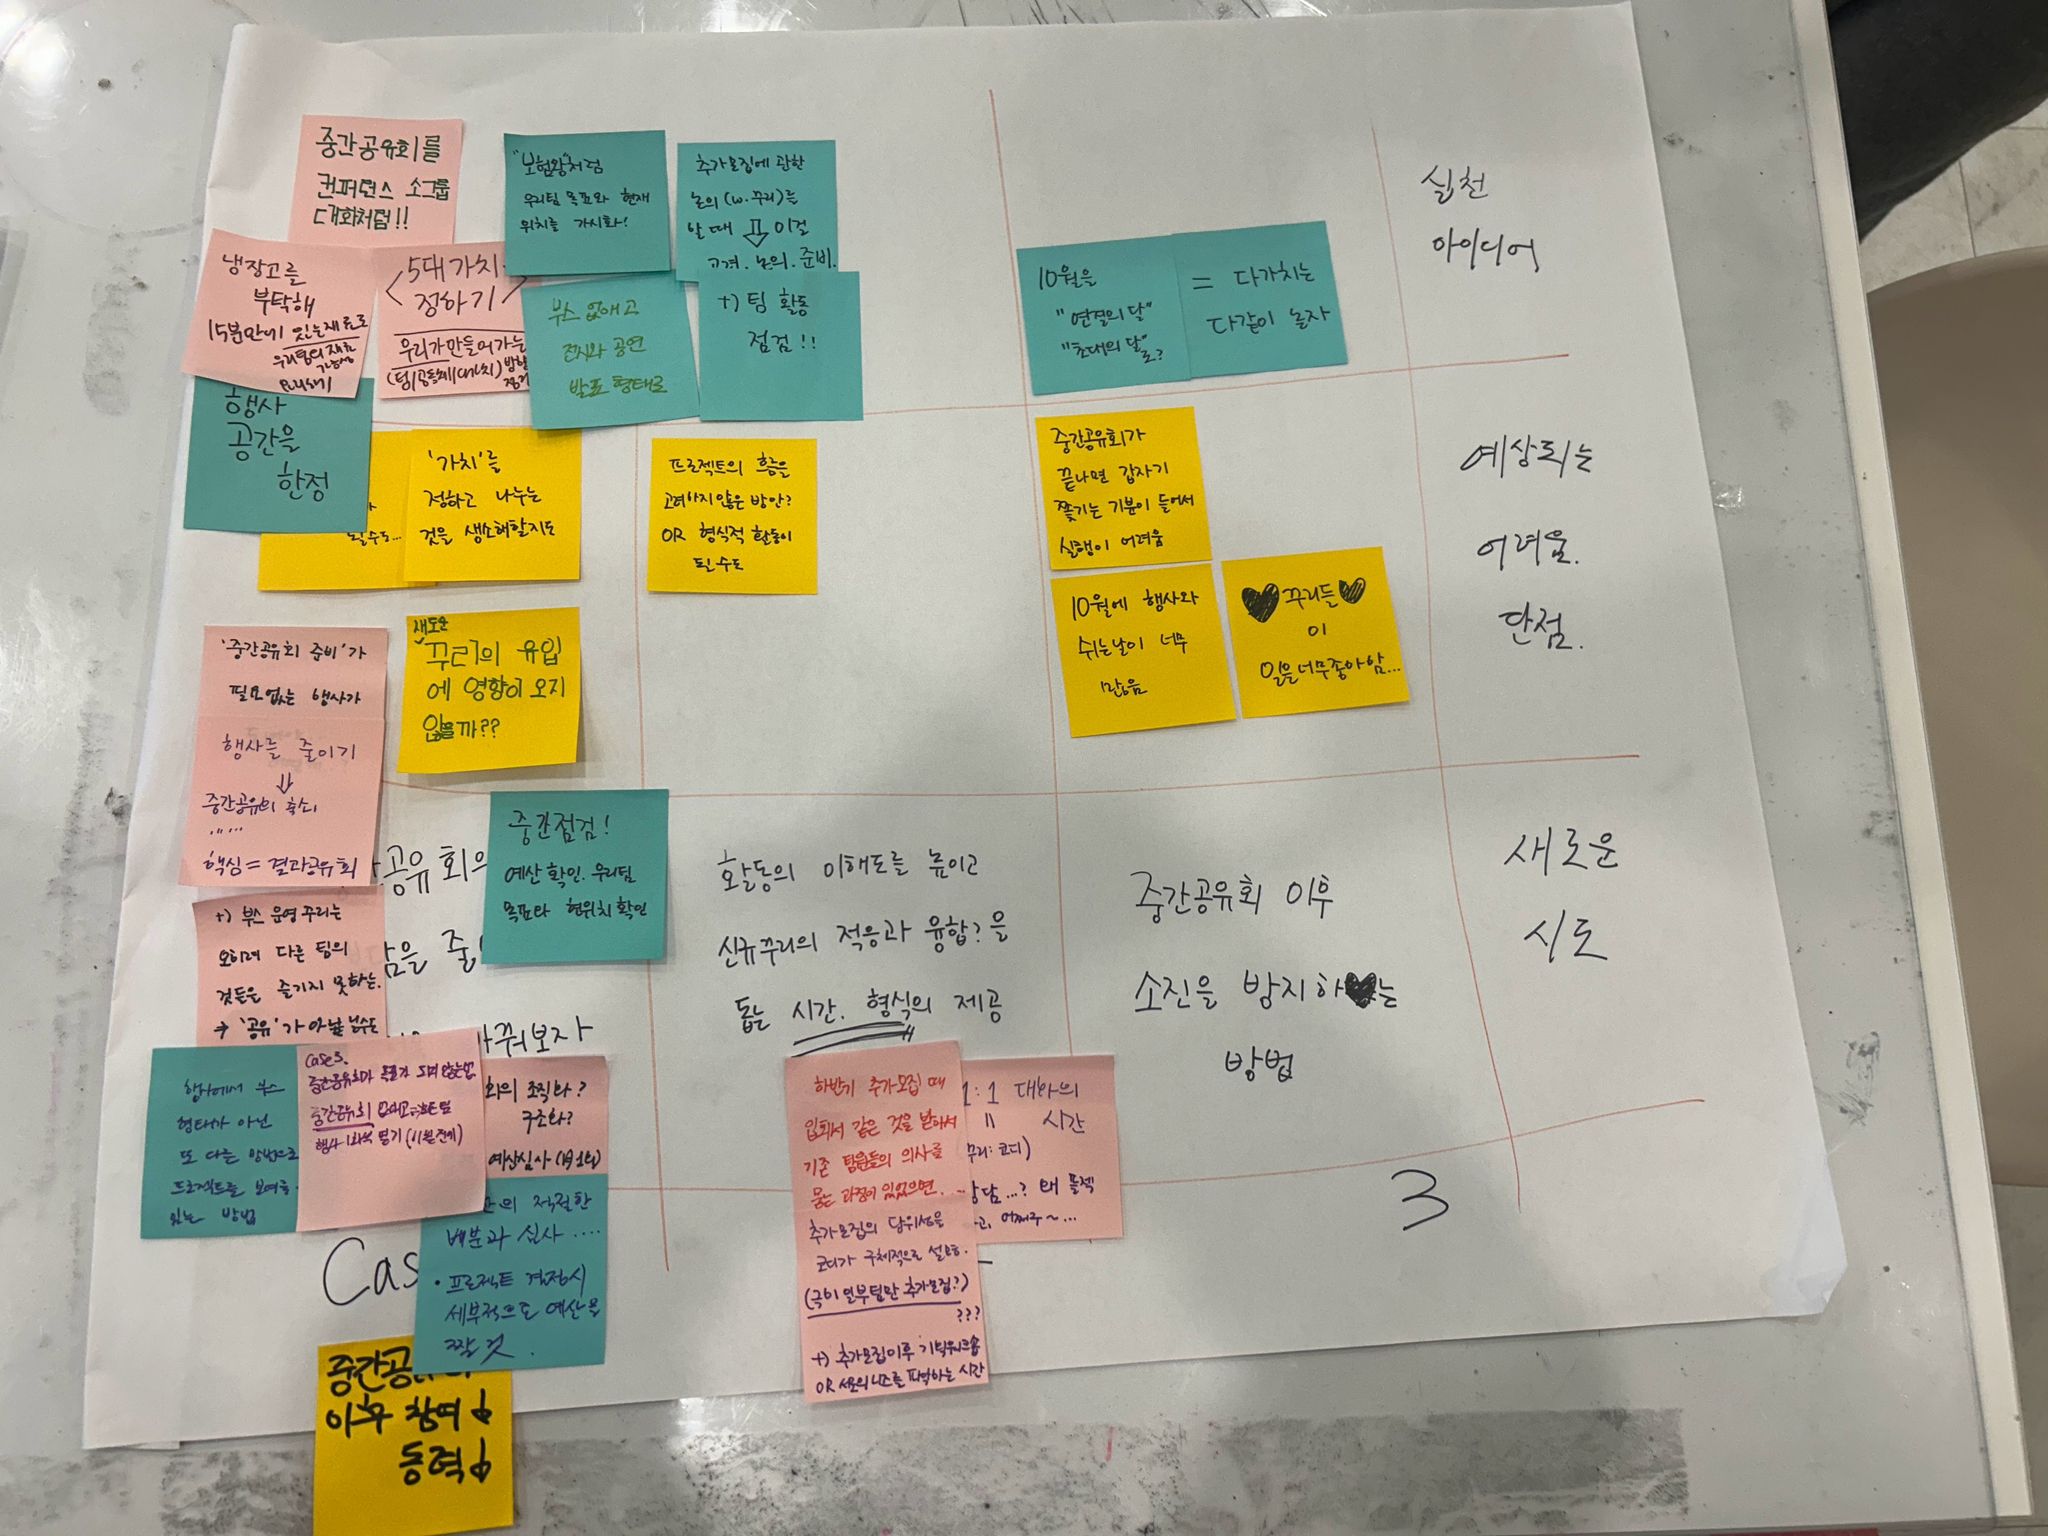 중간공유회를
컨퍼런스 소그룹
대회처럼!!
"보험왕"처럼
우리팀 목표와 현재
위치를 가시화!
추가모집에 관한
논의 (w. 꾸리)를
할 때 ⇩ 이걸
고려. 논의. 준비.
+) 팀 활동
점검!!
냉장고를
부탁해
15분만에 있는재료로
우리팀의
<5대 가치>
정하기
우리가만들어가는
부스 없애고
전시와 공연
발표 형태로
행사
공간을
한정
10월을
"연결의 달"
"초대의 달"
로?
= 다가치는
다같이 놀자
실천
아이디어
될수도...
'가치'를
정하고 나누는
것을 생소해할지도
프로젝트의 흐름을
고려하지않은 방안?
OR 형식적 활동이
될 수도
중간공유회가
끝나면 갑자기
쫓기는 기분이 들어서
실행이 어려움
10월에 행사와
쉬는날이 너무
많음
♥꾸리들♥
이
일을너무좋아함...
예상되는
어려움.
단점.
'중간공유회 준비'가
필요없는 행사가
행사를 줄이기
⇓
중간공유의 축소,
.....
핵심 = 결과공유회
+) 부스 운영 꾸리는
오히려 다른 팀의
것들을 즐기지 못하는.
→ '공유'가 아닐 수도
새로운
꾸리의 유입
에 영향이 오지
않을까??
공유회의
중간점검!
예산확인. 우리팀
목표와 현위치 확인
담을 줄
바꿔보자
활동의 이해도를 높이고
신규꾸리의 적응과 융합?을
돕는 시간. 형식의 제공
중간공유회 이후
소진을 방지하♥는
방법
새로운
시도
행사에서 부스
형태가 아닌
또 다른 방법으로
프로젝트를 보여줄 수
있는 방법
case3.
중간공유회 없애고
행사 1회씩 열기 (11월전에)
회의 조직화?
구조화?
예산심사 (1月1회)
의 적절한
배분과 심사 ....
• 프로젝트 결정시
세부적으로 예산을
짤 것.
Cas
중간공
이후 참여↓
동력↓
하반기 추가모집 때
입회서 같은 것을 받아서
기존 팀원들의 의사를
묻는 과정이 있었으면....
추가모집의 당위성을
코디가 구체적으로 설명.
(굳이 일부팀만 추가모집?)
???
+) 추가모집이후 기획워크숍
OR 서로의 니즈를 파악하는 시간
1:1 대화의
= 시간
꾸리:코디)
상담...? 왜 플젝
어쩌구~...
3